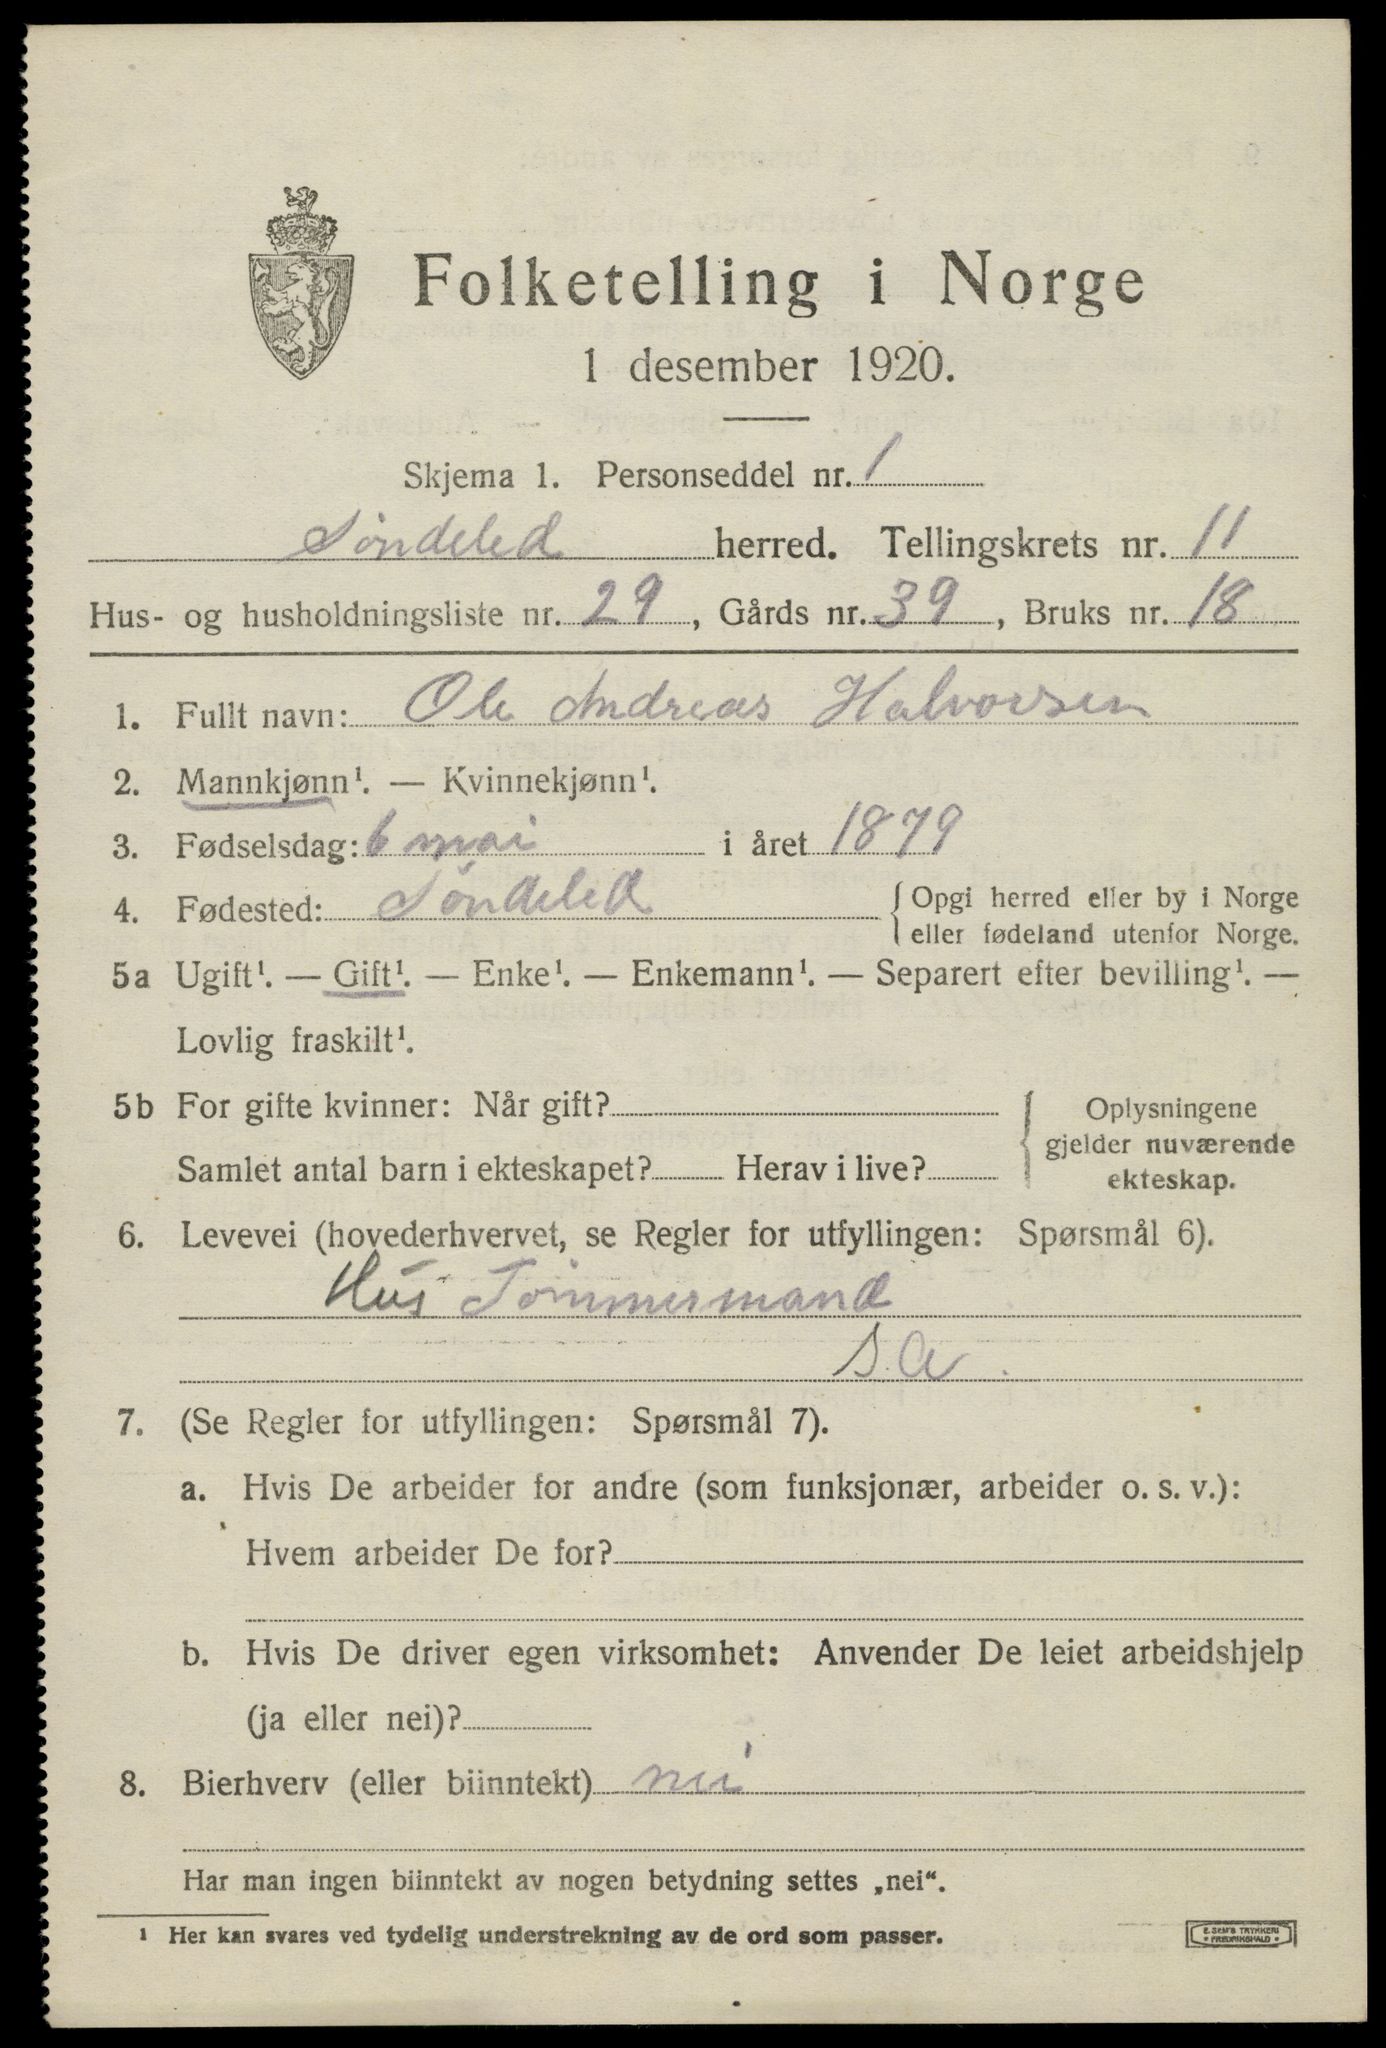 Folketelling i Norge
1 desember 1920.
Skjema 1. Personseddel nr. 1
Søndeled herred. Tellingskrets nr. 11
Hus- og husholdningsliste nr. 29, Gårds nr. 39, Bruks nr. 18
1. Fullt navn: Ole Andreas Halvorsen
2. Mannkjønn¹. — Kvinnekjønn¹.
3. Fødselsdag: 6 mai i året 1879
4. Fødested: Søndeled { Opgi herred eller by i Norge
eller fødeland utenfor Norge.
5a Ugift¹. — Gift¹. — Enke¹. — Enkemann¹. — Separert efter bevilling¹. —
Lovlig fraskilt¹.
5b For gifte kvinner: Når gift? { Oplysningene
gjelder nuværende
Samlet antal barn i ekteskapet? Herav i live? ekteskap.
6. Levevei (hovederhvervet, se Regler for utfyllingen: Spørsmål 6).
Hus Tømmermand
S.A.
7. (Se Regler for utfyllingen: Spørsmål 7).
a. Hvis De arbeider for andre (som funksjonær, arbeider o. s. v.):
Hvem arbeider De for?
b. Hvis De driver egen virksomhet: Anvender De leiet arbeidshjelp
(ja eller nei)?
8. Bierhverv (eller biinntekt) nei
Har man ingen biinntekt av nogen betydning settes „nei“.
¹ Her kan svares ved tydelig understrekning av de ord som passer.
E. SEM'S TRYKKERI
• FREDRIKSHALD •